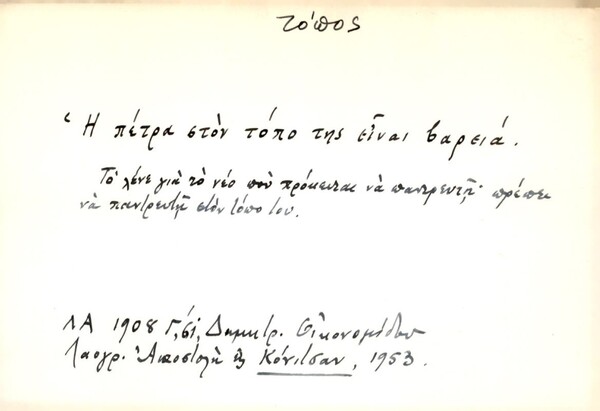 τόπος
Ἡ πέτρα στὸν τόπο της εἶναι βαρειά.
Τὸ λένε γιὰ τὸ νέο ποὺ πρόκειται νὰ παντρευτῇ· πρέπει
νὰ παντρευτῇ στὸν τόπο του.
ΛΑ 1908 Γ, Δημητρ. Οἰκονομίδου
Λαογρ. Ἀποστολὴ εἰς Κόνιτσαν, 1953.